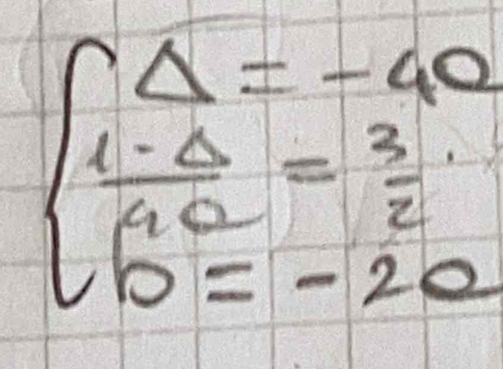 Δ = -4a
1-Δ/4a = 3/2.
b = -2a